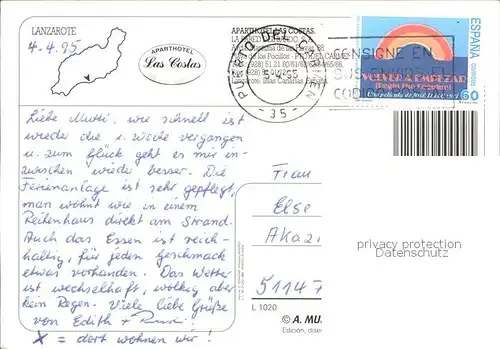 LANZAROTE
4.4.95
APARTHOTEL
Las Costas
APARTHOTEL LAS COSTAS.
PUERTO DEL CARMEN
5-4-95
- 35 -
CONSIGNE EN
SUS ENVIOS EL
CODIGO
ESPAÑA
VOLVER A EMPEZAR
(Begin the Beguine)
60
Liebe Mutti, wie schnell ist
wieder die 1. Woche vergangen
u. zum Glück geht es mir in-
zwischen wieder besser. Die
Ferienanlage ist sehr gepflegt
man wohnt wie in einem
Reihenhaus direkt am Strand.
Auch das Essen ist reich-
haltig, für jeden Geschmack
etwas vorhanden. Das Wetter
ist wechselhaft, wolkig aber
kein Regen. Viele liebe Grüße
von Edith +
X = dort wohnen wir!
Frau
Else
Akazi
5114
privacy protection
Datenschutz
L 1020
© A. MU
Edición, dise